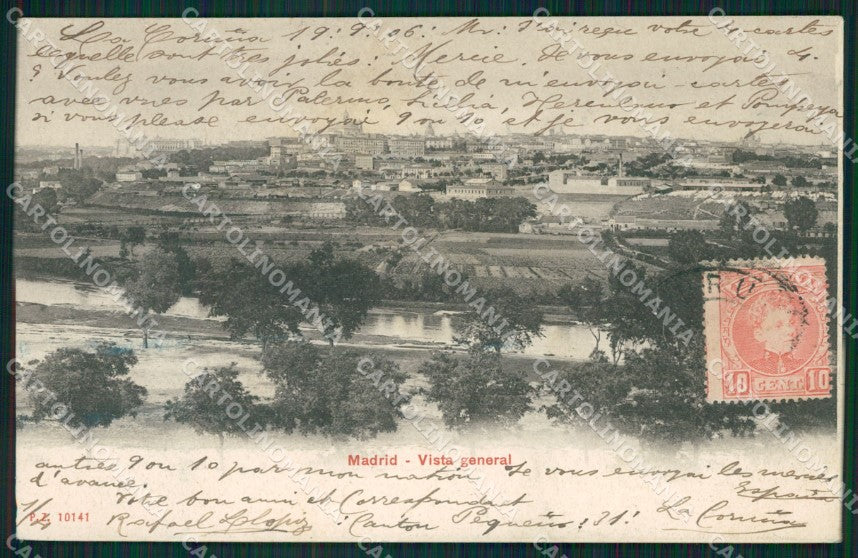 La Coruña 19.9.06: Mr: J'ai reçu votre 4 cartes
equelle sont tres joliés: Mercie. Je vous envoyai 4.
Voulez vous avoir la bonté de m'envoyai cartes
avec vues par Palermo, Sicilia, Herculano et Pompeya
si vous please envoyai 9 ou 10 et je vous envoyerai
Madrid - Vista general
autres 9 ou 10 par mon nation. Je vous envoyai les mercies
d'avance.
Votre bon ami et Correspondant
España
P. Z. 10141
Rafael López: Canton Pequeño: 31: La Coruña
18 CENT. 10
CARTOLINOMANIA